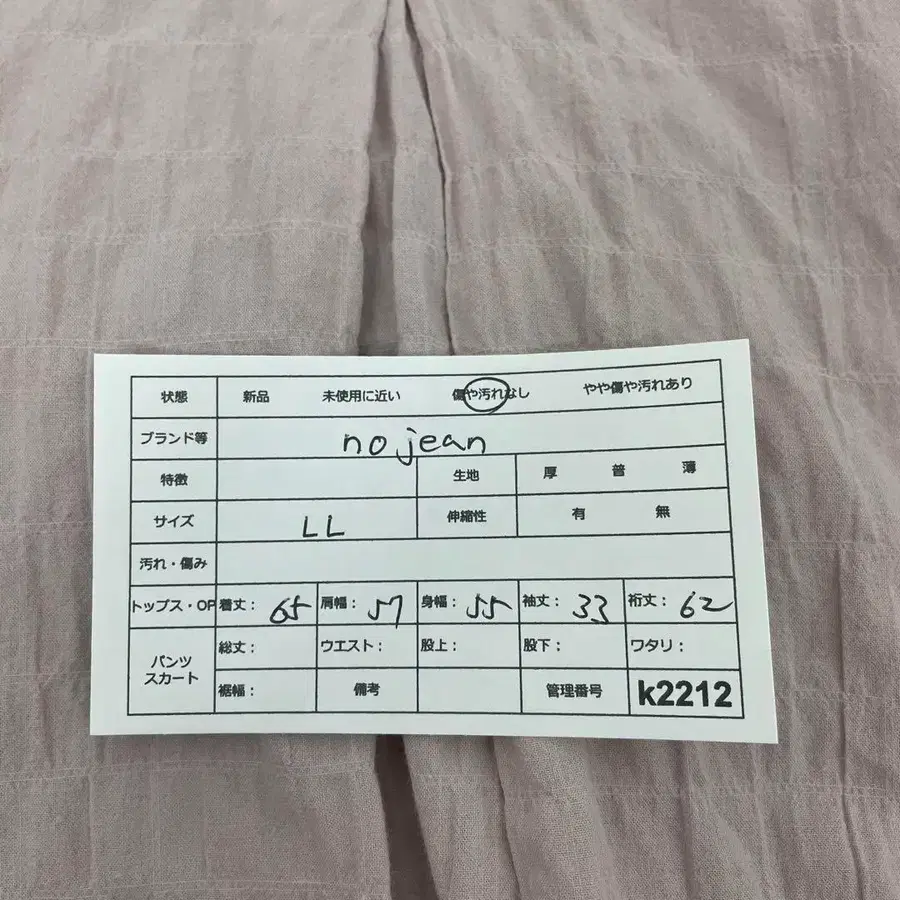 状態 新品 未使用に近い 傷や汚れなし やや傷や汚れあり
ブランド等 no jean
特徴 生地 厚 普 薄
サイズ LL 伸縮性 有 無
汚れ・傷み
トップス・OP 着丈： 65 肩幅： 57 身幅： 55 袖丈： 33 裄丈： 62
パンツ スカート 総丈： ウエスト： 股上： 股下： ワタリ：
裾幅： 備考 管理番号 k2212